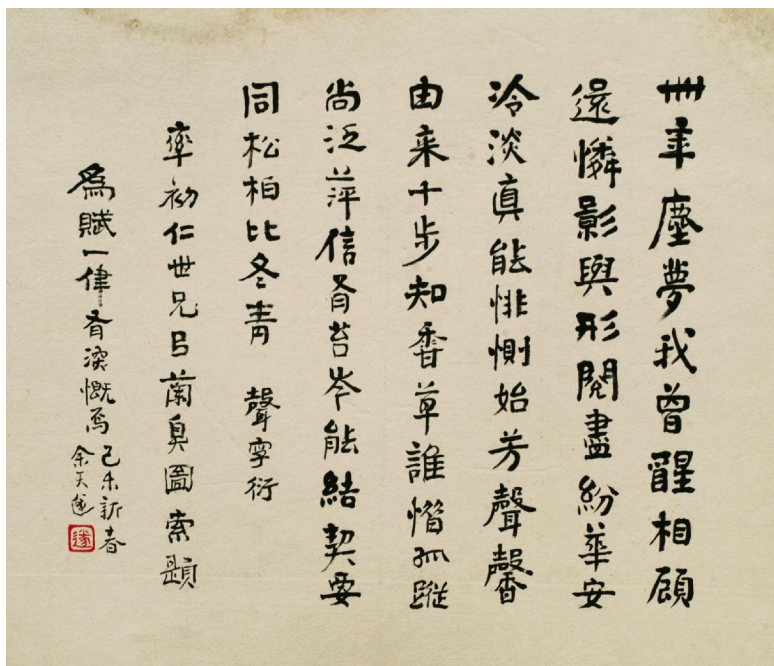 卌年塵夢我曾醒相顧
還憐影與形閱盡紛華安
冷淡真能悱惻始芳聲馨
由来十步知香草誰惜孤蹤
尚泛萍信有苔岑能結契要
同松柏比冬青 聲字衍
率初仁世兄㠯蘭臭圖索題
爲賦一律有深慨焉 己未新春
余天遂
遂